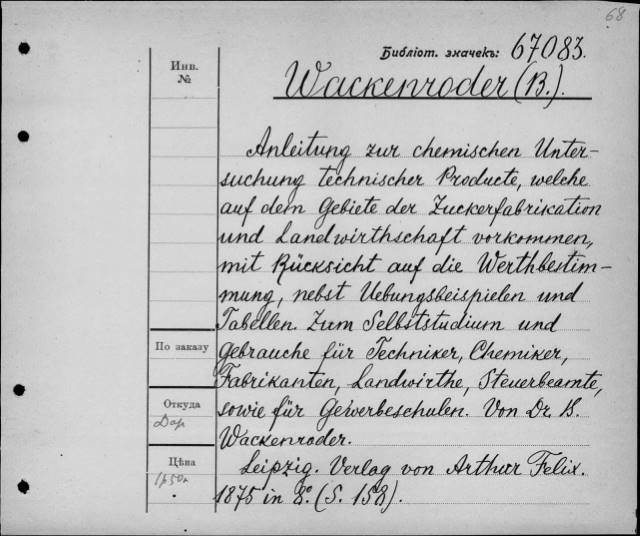 68
Библіот. значекъ: 67083.
Инв.
№
Wackenroder (B.).
Anleitung zur chemischen Unter-
suchung technischer Producte, welche
auf dem Gebiete der Zuckerfabrikation
und Landwirthschaft vorkommen,
mit Rücksicht auf die Werthbestim-
mung, nebst Uebungsbeispielen und
Tabellen. Zum Selbststudium und
Gebrauche für Techniker, Chemiker,
Fabrikanten, Landwirthe, Steuerbeamte,
sowie für Gewerbeschulen. Von Dr. B.
Wackenroder.
Leipzig. Verlag von Arthur Felix.
1875 in 8º. (S. 158).
По заказу
Откуда
Дар
Цѣна